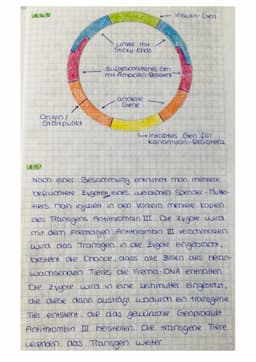 Insulin-Gen
Linker mit
Sticky-Ends
aufgeschnittenes Gen
mit Ampicillin-Resistenz
andere
Gene
Origin /
Startpunkt
Intaktes Gen für
Kanamycin-Resistenz
Nach einer Besamung entnimmt man mehrere
befruchtete Zygoten eines weiblichen Spender-Mutter-
tiers. Man injiziert in den Vorkern mehrere Kopien
des Transgens Antithrombin III. Die Zygote wird
mit dem fremdigen Antithrombin III verschmolzen.
Wird das Transgen in die Zygote eingebracht,
besteht die Chance, dass alle Zellen des heran-
wachsenden Tieres die Fremd-DNA enthalten.
Die Zygote wird in eine Leihmutter eingesetzt,
die diese dann austrägt wodurch ein transgene
Tier entsteht, die das gewünschte Genprodukt
Antithrombin III herstellen. Die transgene Tiere
vererben das Transgen weiter.